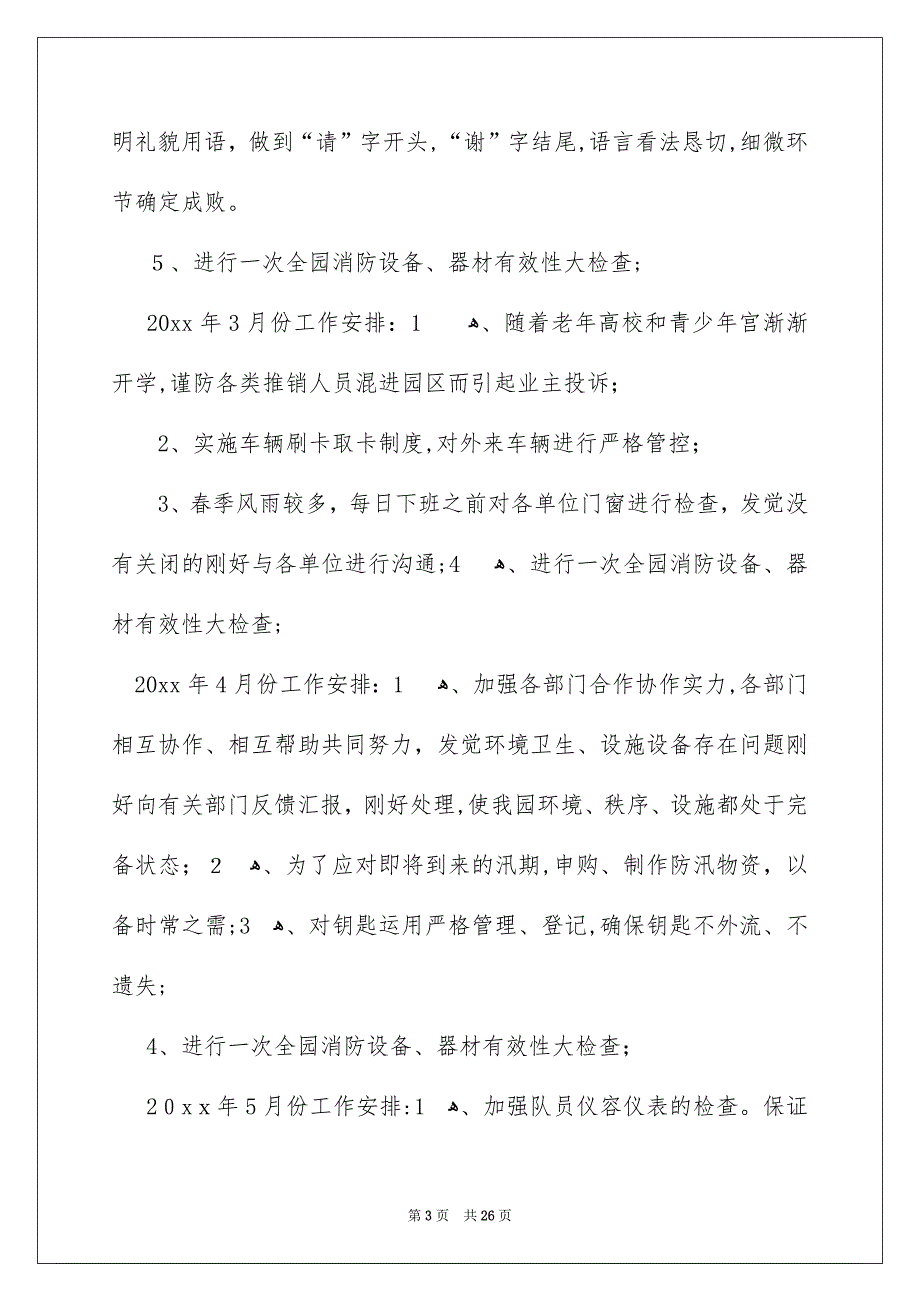 明礼貌用语，做到“请”字开头,“谢”字结尾,语言看法恳切,细微环
节确定成败。
5、进行一次全园消防设备、器材有效性大检查;
20xx 年 3 月份工作安排：1 ﻫ、随着老年高校和青少年宫渐渐
开学,谨防各类推销人员混进园区而引起业主投诉；
2、实施车辆刷卡取卡制度,对外来车辆进行严格管控；
3、春季风雨较多，每日下班之前对各单位门窗进行检查，发觉没
有关闭的刚好与各单位进行沟通;4 ﻫ、进行一次全园消防设备、器
材有效性大检查;
20xx 年 4 月份工作安排：1 ﻫ、加强各部门合作协作实力,各部门
相互协作、相互帮助共同努力，发觉环境卫生、设施设备存在问题刚
好向有关部门反馈汇报，刚好处理,使我园环境、秩序、设施都处于完
备状态；２ ﻫ、为了应对即将到来的汛期,申购、制作防汛物资，以
备时常之需;3 ﻫ、对钥匙运用严格管理、登记,确保钥匙不外流、不
遗失;
4、进行一次全园消防设备、器材有效性大检查；
２0ｘx 年 5 月份工作安排:1 ﻫ、加强队员仪容仪表的检查。保证
第 3 页 共 26 页